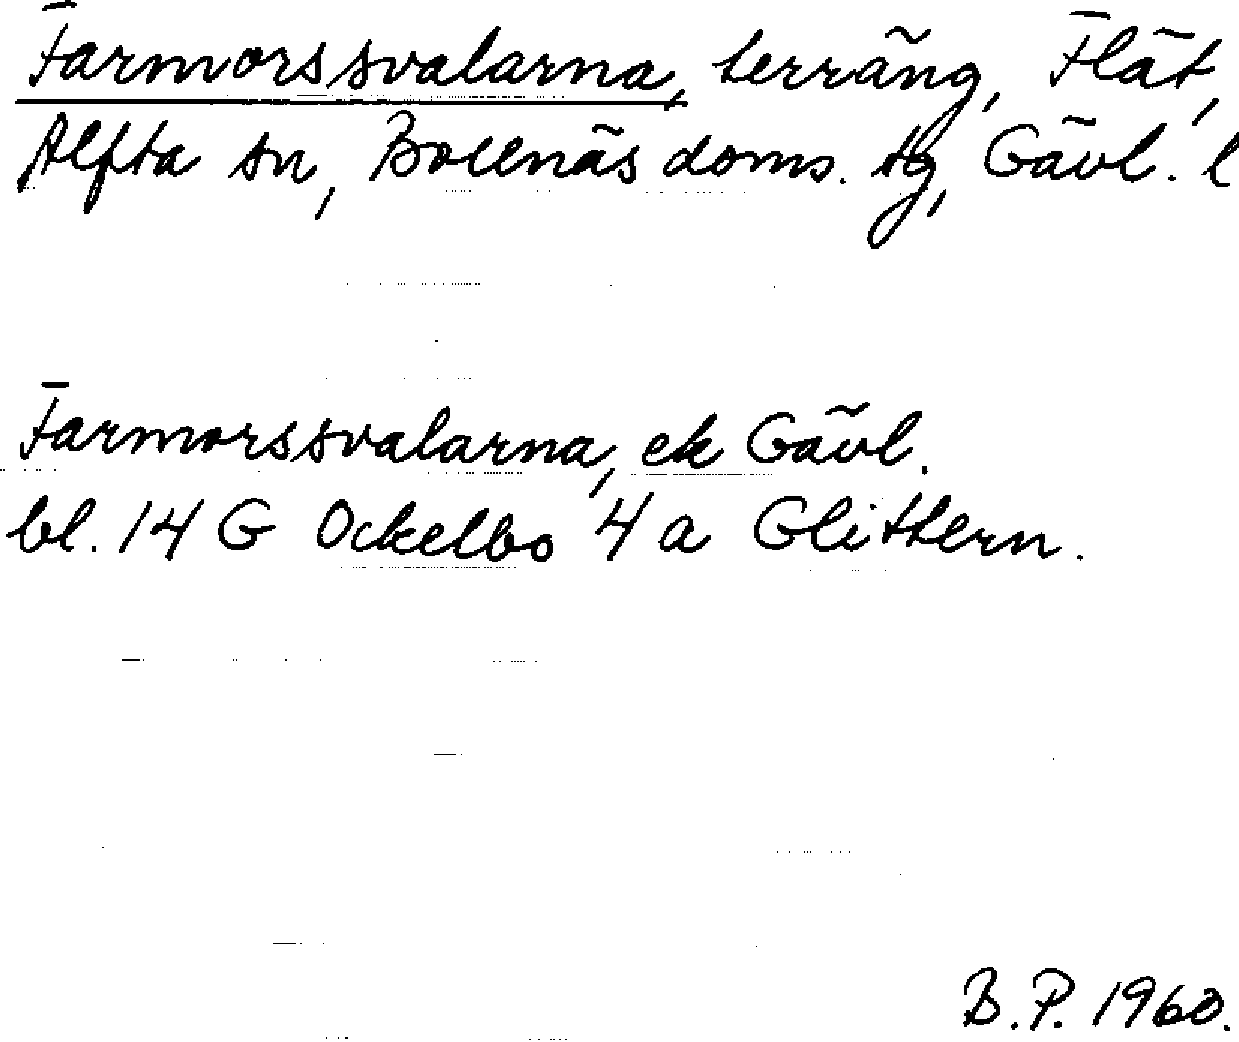 Farmorssvalarna, terräng, Flät,
Alfta sn, Bollnäs doms. tg, Gävl. l
Farmorssvalarna, ek Gävl.
bl. 14 G Ockelbo 4 a Glittern.
B.P. 1960.